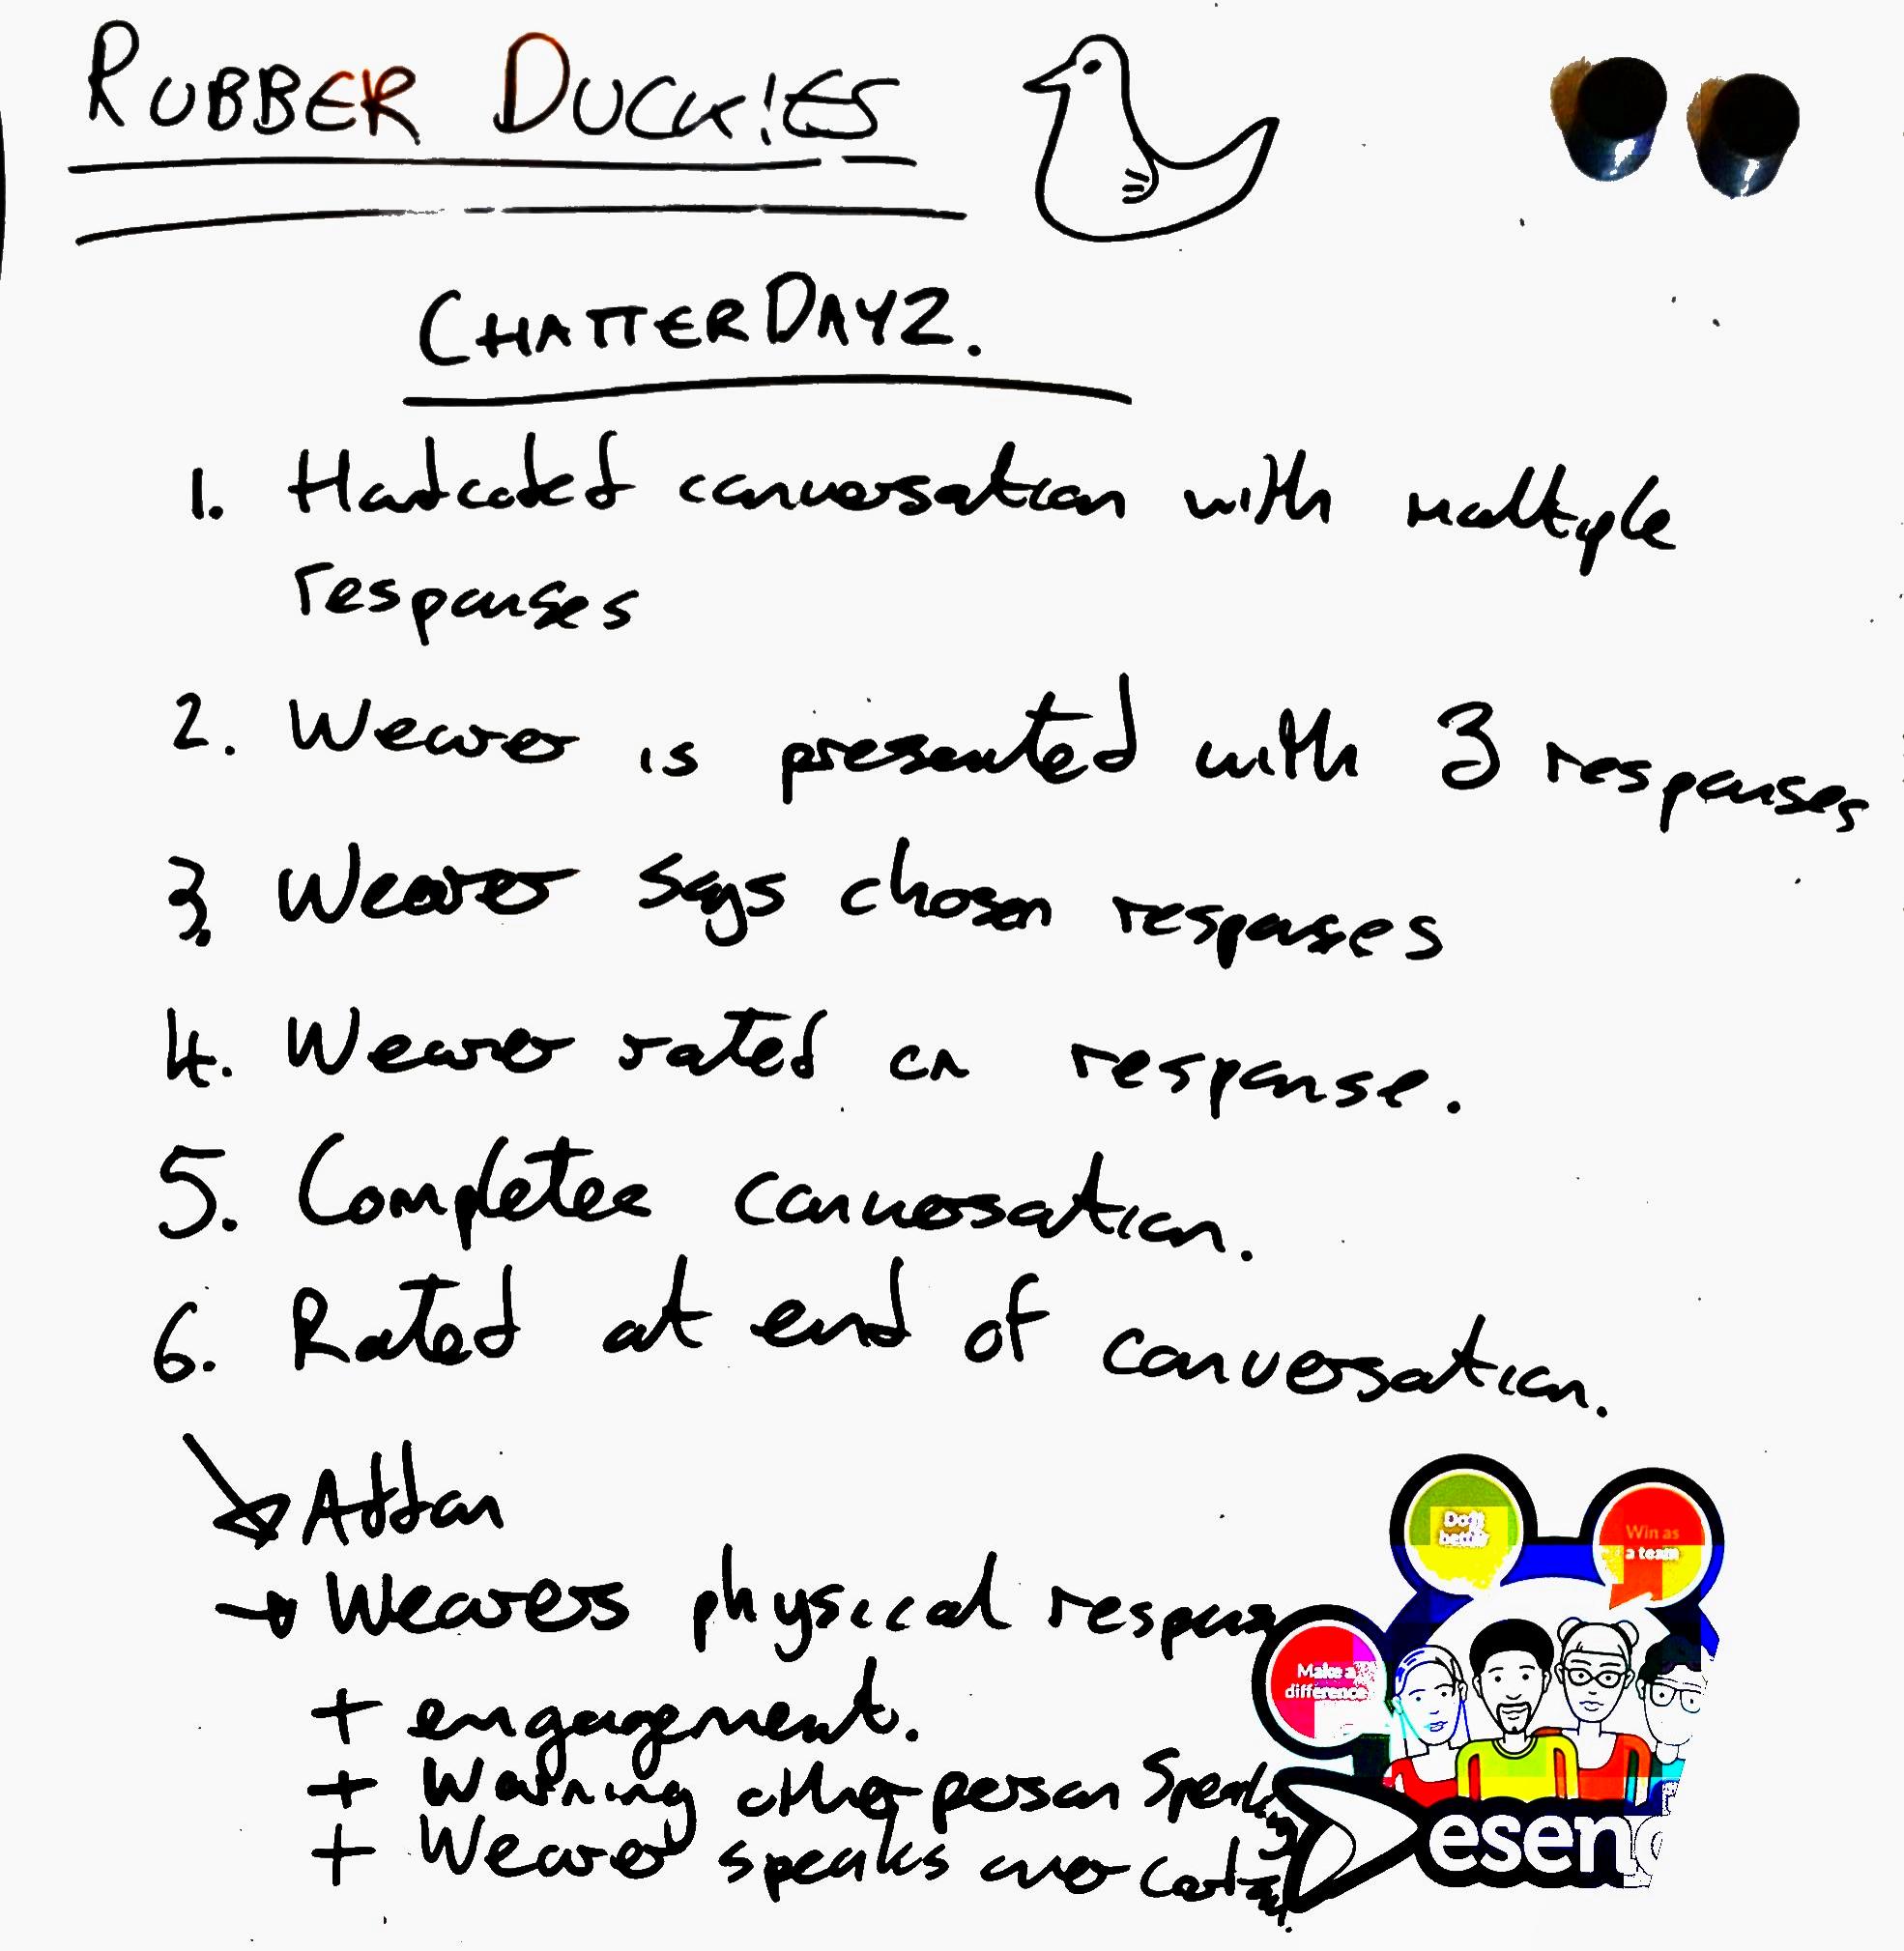 RUBBER DUCK!ES
CHATTERDAYZ.
1. Hardcoded conversation with multiple
responses
2. Wearer is presented with 3 responses
3. Wearer says chosen responses
4. Wearer rated on response.
5. Completes conversation.
6. Rated at end of conversation.
Addon
Wearers physical
+ engagement.
+ Warning other person
+ Wearer speaks over
Win as
a team
Make a
difference
esen